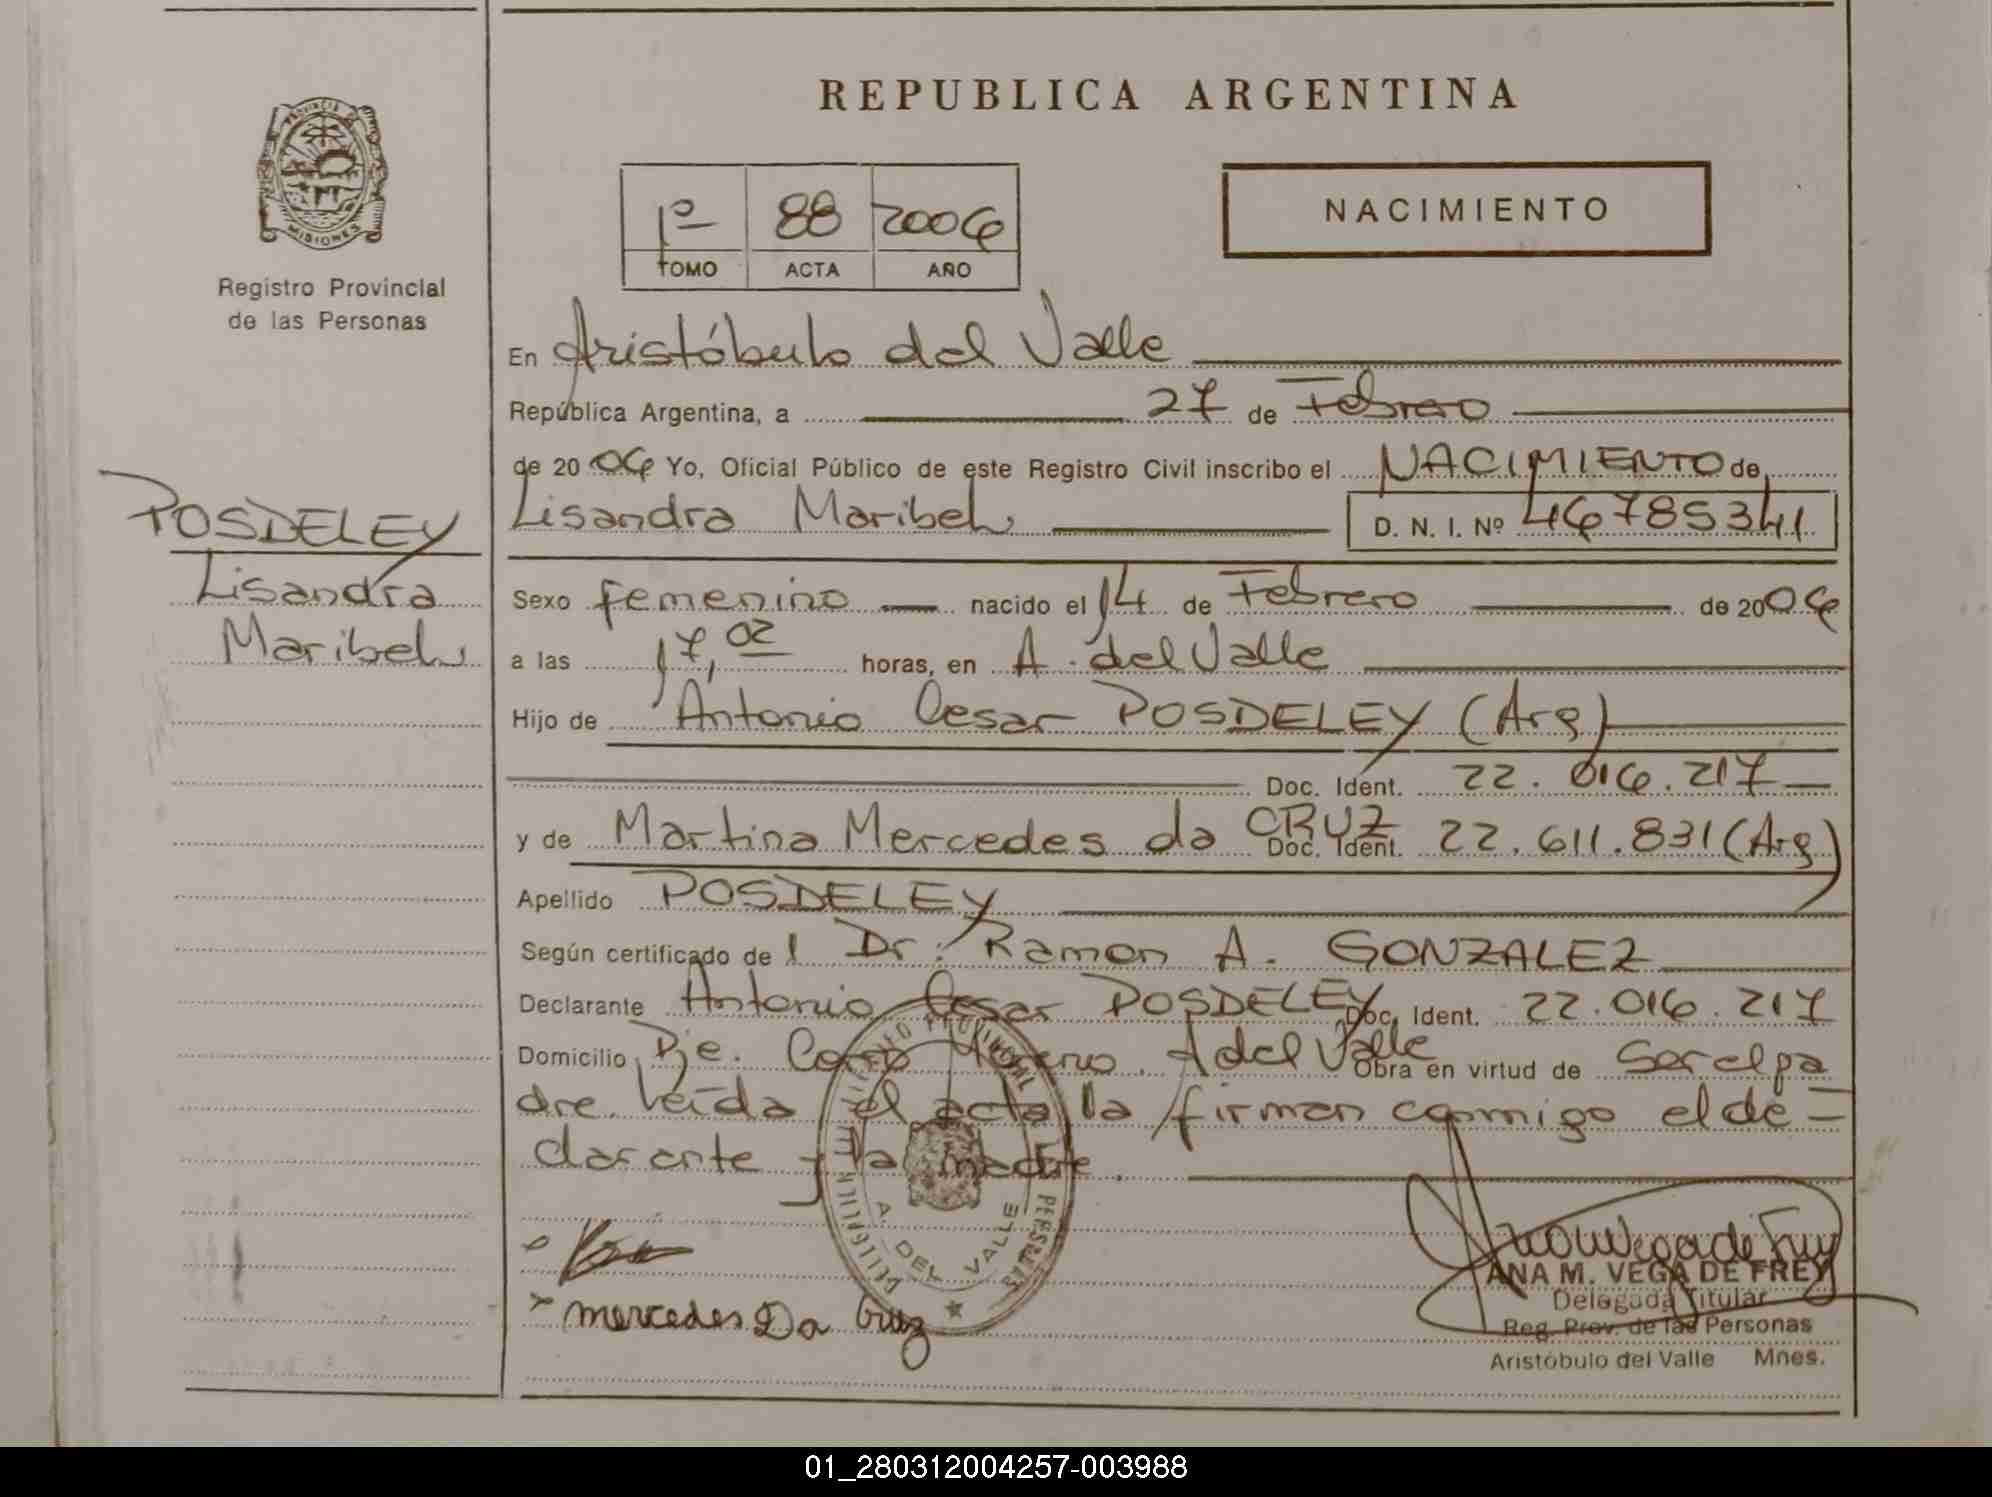 REPUBLICA ARGENTINA
PROVINCIA DE
MISIONES
Registro Provincial
de las Personas
1º 88 2006
TOMO ACTA AÑO
NACIMIENTO
POSDELEY
Lisandra
Maribel
En Aristóbulo del Valle
República Argentina, a 27 de Febrero
de 2006 Yo, Oficial Público de este Registro Civil inscribo el NACIMIENTO de
Lisandra Maribel D. N. I. Nº 46785341
Sexo femenino nacido el 14 de Febrero de 2006
a las 17,02 horas, en A. del Valle
Hijo de Antonio Cesar POSDELEY (Arg)
Doc. Ident. 22.016.217
y de Martina Mercedes da CRUZ Doc. Ident. 22.611.831 (Arg)
Apellido POSDELEY
Según certificado de l Dr. Ramon A. GONZALEZ
Declarante Antonio Cesar POSDELEY Doc. Ident. 22.016.217
Domicilio Pje. Moreno. A del Valle Obra en virtud de Ser el pa
dre. Leída el acta la firman conmigo el de=
clarante y la madre.
A. DEL VALLE
mercedes Da Cruz
ANA M. VEGA DE FREY
Delegada Titular
Reg. Prov. de las Personas
Aristóbulo del Valle Mnes.
01_280312004257-003988